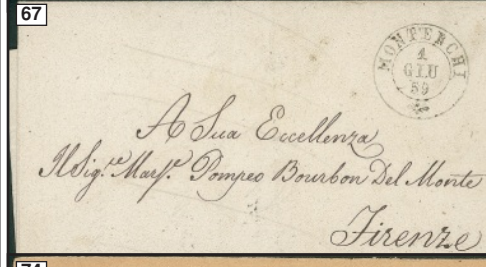 67
MONTERCHI
1
GIU
59
A Sua Eccellenza
Il Sig.re Mars.e Pompeo Bourbon Del Monte
Firenze
74